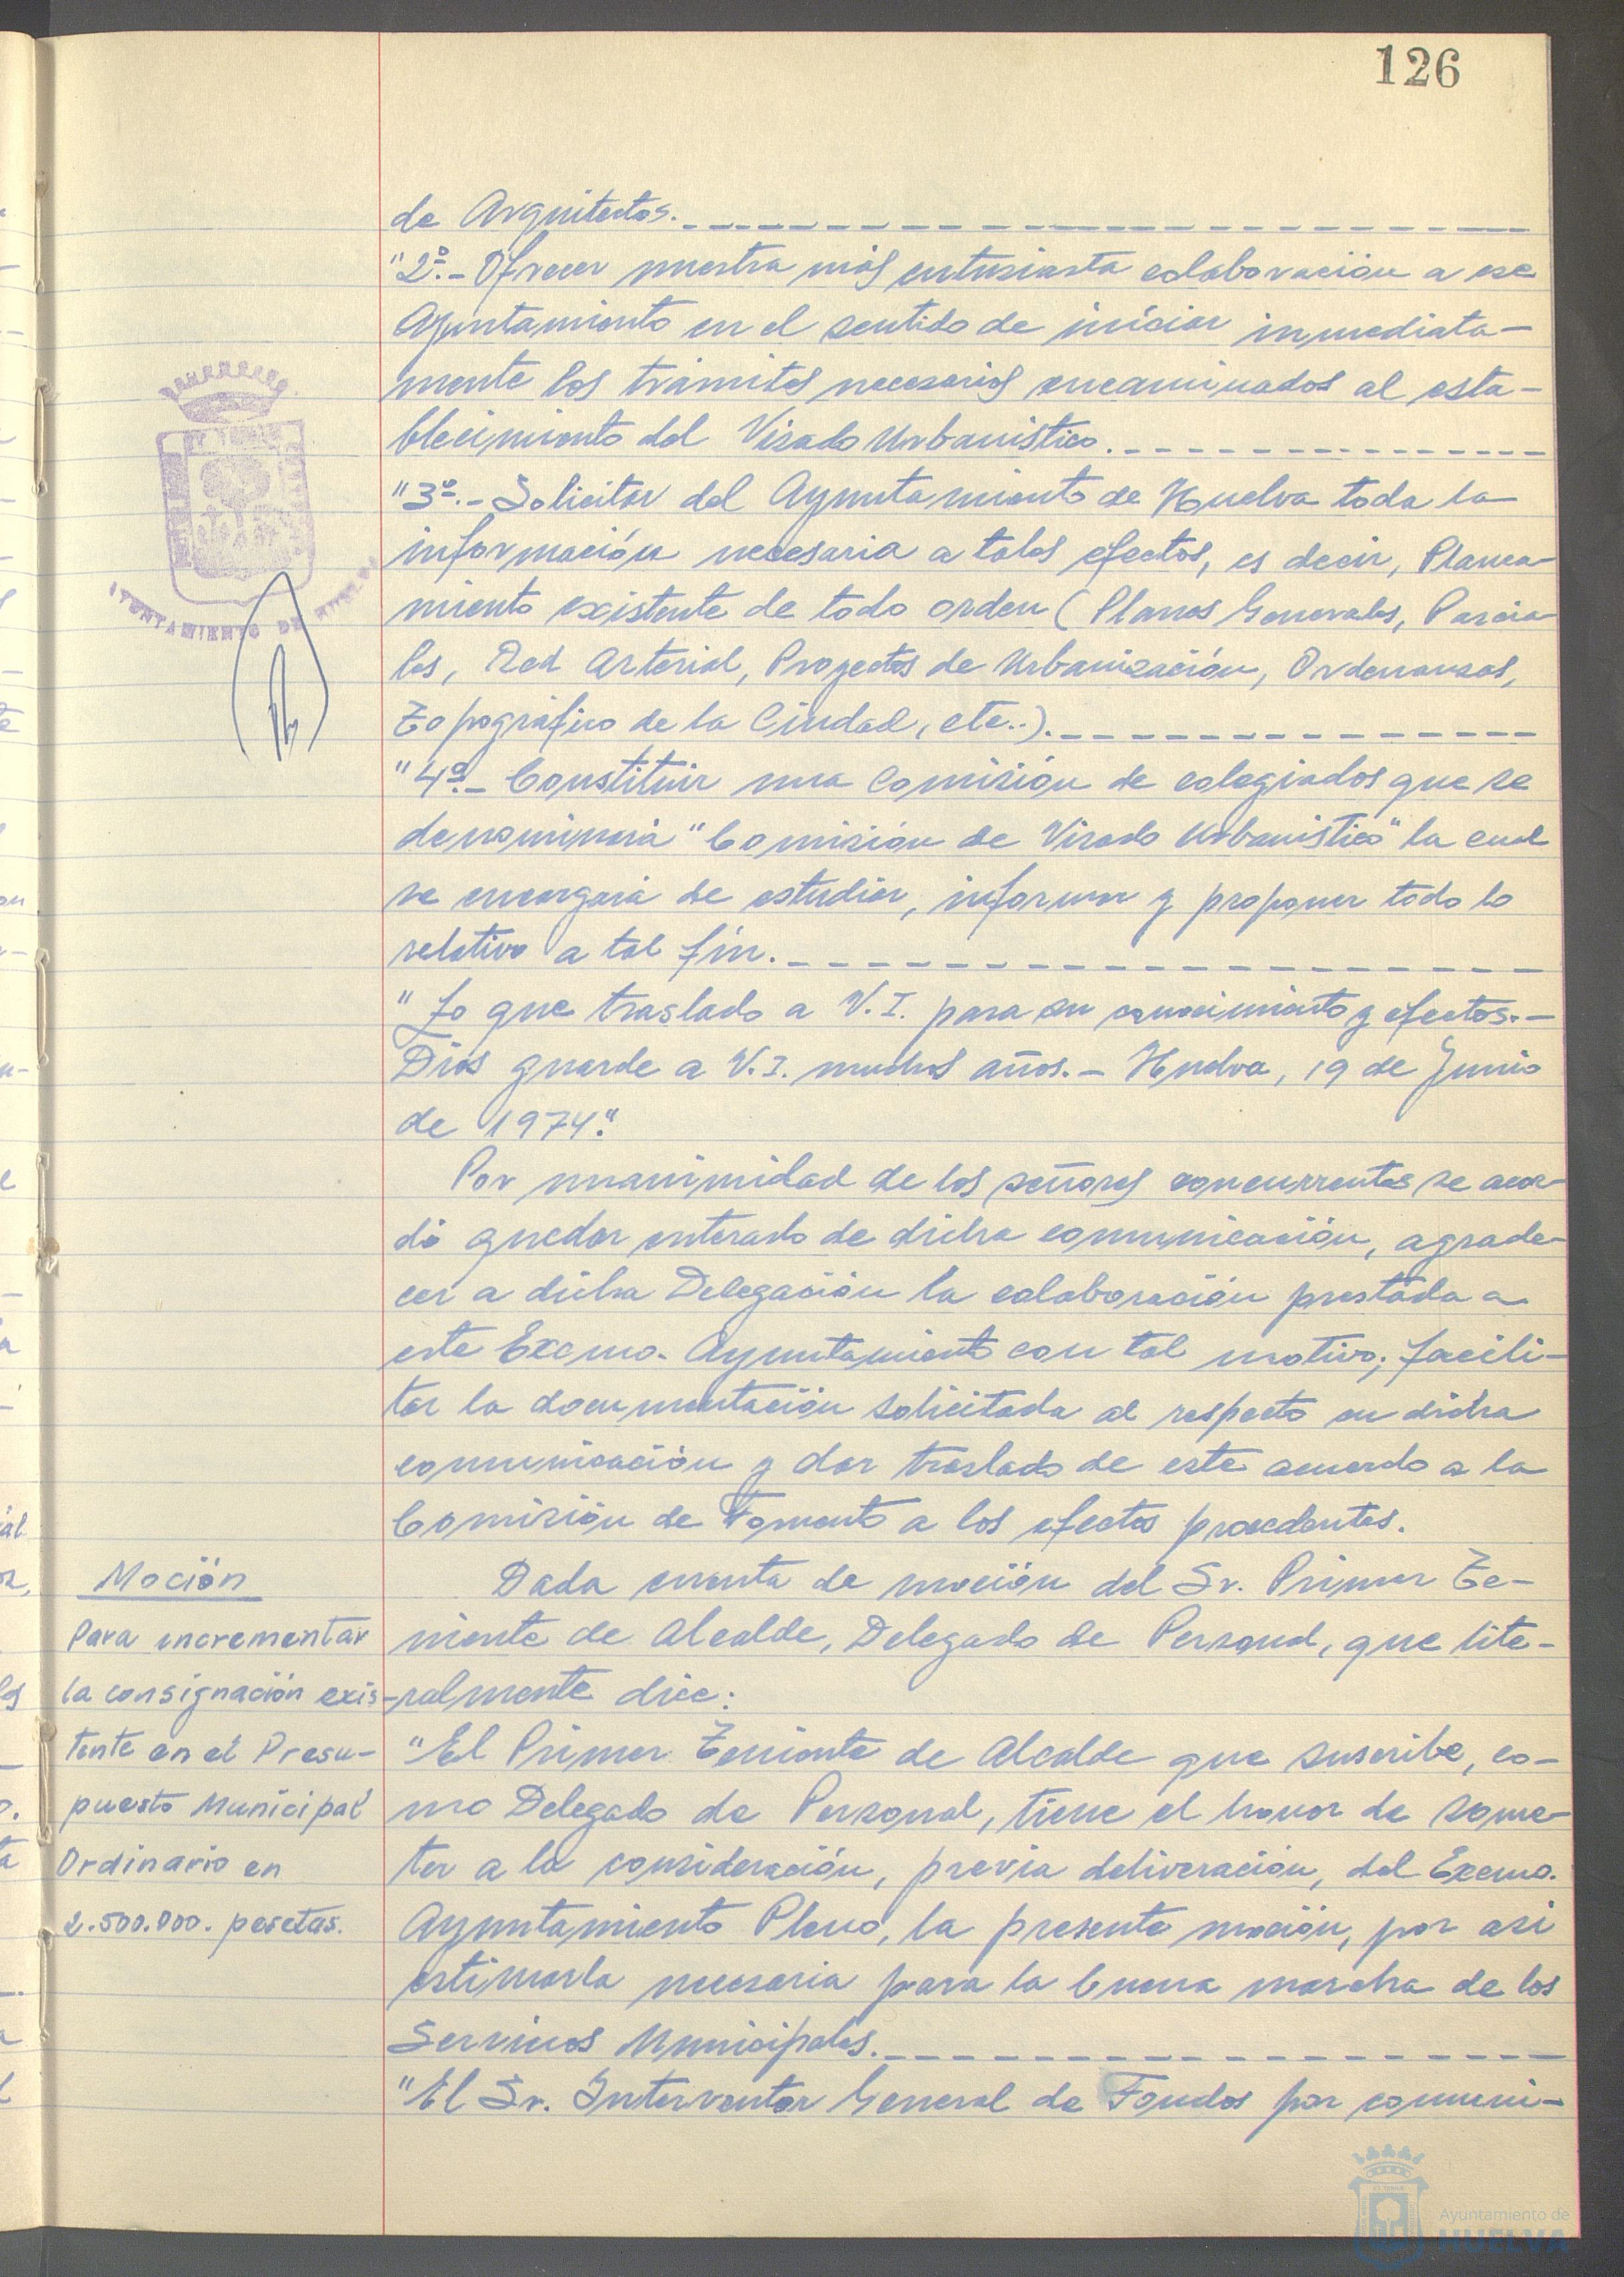 126
de Arquitectos.
"2º.- Ofrecer nuestra más entusiasta colaboración a ese
Ayuntamiento en el sentido de iniciar inmediata-
mente los trámites necesarios encaminados al esta-
blecimiento del Visado Urbanístico.
"3º.- Solicitar del Ayuntamiento de Huelva toda la
información necesaria a tales efectos, es decir, Planea-
miento existente de todo orden (Planos Generales, Parcia-
les, Red Arterial, Proyectos de Urbanización, Ordenanzas,
Topográfico de la Ciudad, etc..).
"4º.- Constituir una Comisión de colegiados que se
denominará "Comisión de Visado Urbanístico" la cual
se encargará de estudiar, informar y proponer todo lo
relativo a tal fín.
"Lo que traslado a V.I. para su conocimiento y efectos.-
Dios guarde a V.I. muchos años.- Huelva, 19 de Junio
de 1974."
Por unanimidad de los señores concurrentes se acor-
dó quedar enterado de dicha comunicación, agrade-
cer a dicha Delegación la colaboración prestada a
este Excmo. Ayuntamiento con tal motivo; facili-
tar la documentación solicitada al respecto en dicha
comunicación y dar traslado de este acuerdo a la
Comisión de Fomento a los efectos procedentes.
Moción
Para incrementar
la consignación exis-
tente en el Presu-
puesto Municipal
Ordinario en
2.500.000. pesetas.
Dada cuenta de moción del Sr. Primer Te-
niente de Alcalde, Delegado de Personal, que lite-
ralmente dice:
"El Primer Teniente de Alcalde que suscribe, co-
mo Delegado de Personal, tiene el honor de some-
ter a la consideración, previa deliveración, del Excmo.
Ayuntamiento Pleno, la presente moción, por asi
estimarla necesaria para la buena marcha de los
Servicios Municipales.
"El Sr. Interventor General de Fondos por comuni-
AYUNTAMIENTO DE HUELVA
Ayuntamiento de
HUELVA